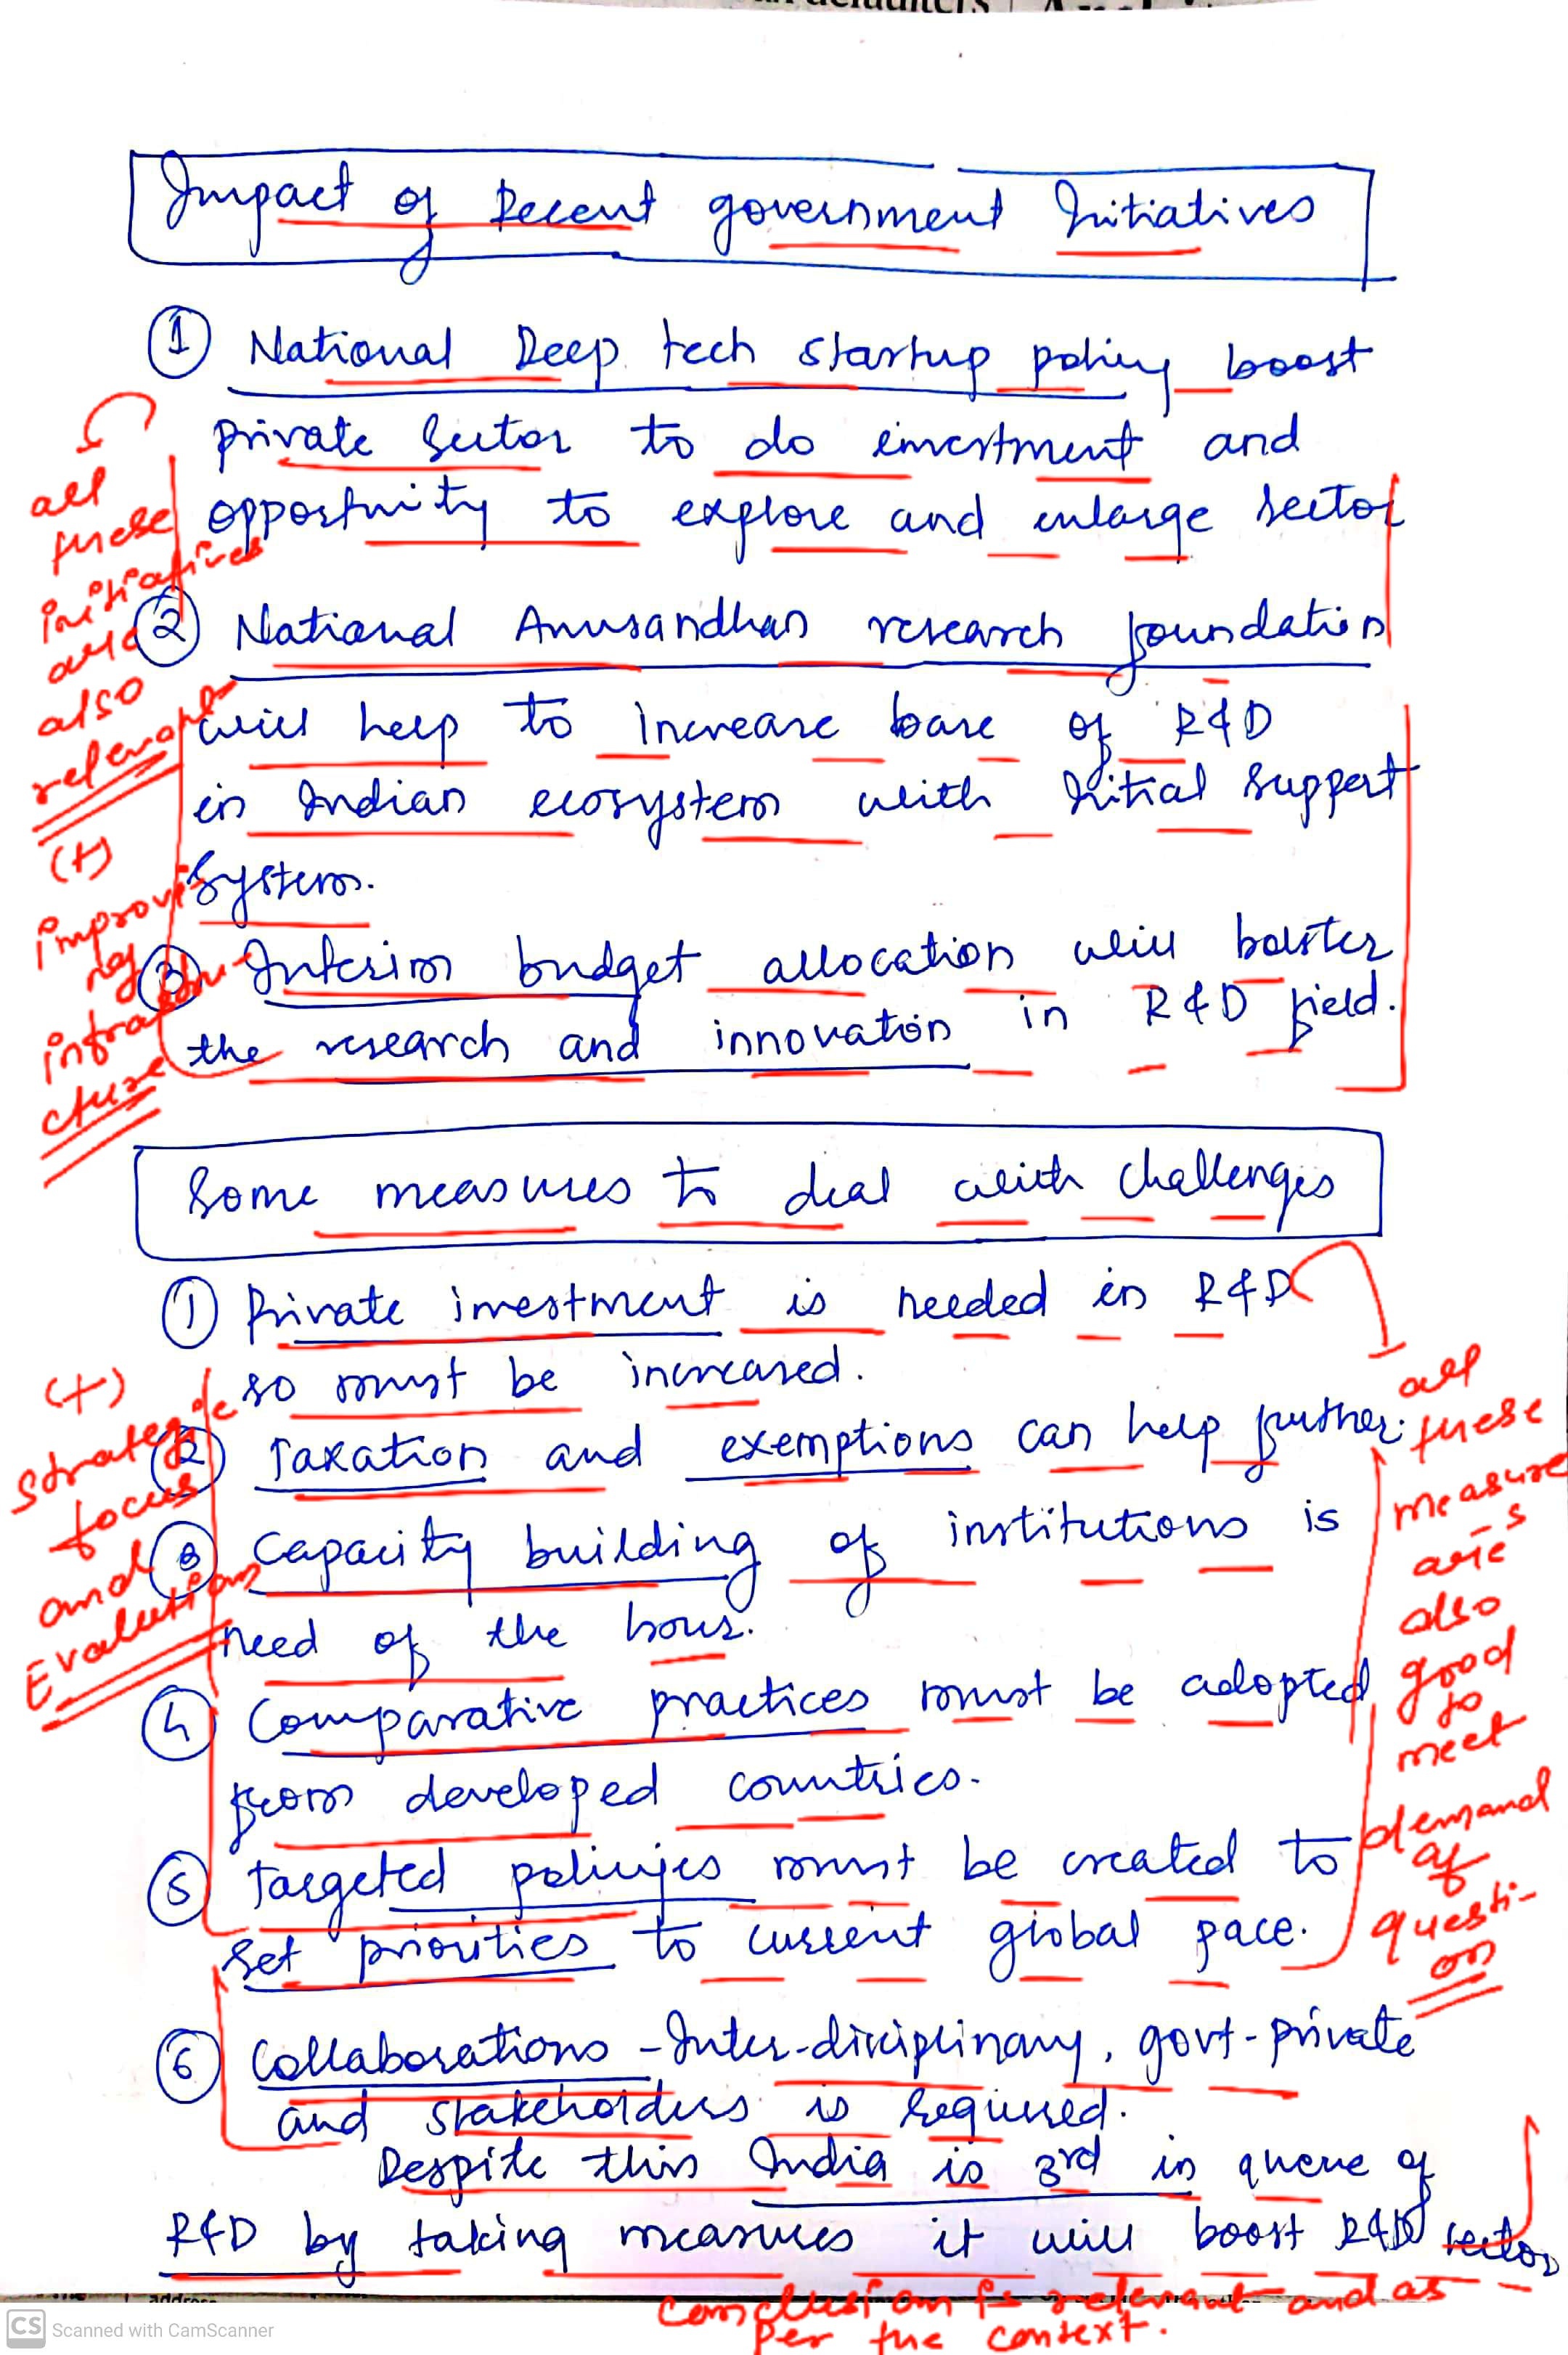 Impact of Recent government Initiatives
① National Deep tech startup policy boost
private sector to do investment and
opportunity to explore and enlarge sector
② National Anusandhan research foundation
will help to increase base of R&D
in Indian ecosystem with Initial support
system.
③ Interim budget allocation will bolster
the research and innovation in R&D field.
all
these
initiatives
are
also
relevant
(+)
improvi
ng
infrastru-
cture
Some measures to deal with challenges
① Private investment is needed in R&D
so must be increased.
② Taxation and exemptions can help further.
③ Capacity building of institutions is
need of the hour.
④ Comparative practices must be adopted
from developed countries.
⑤ Targeted policies must be created to
set priorities to current global pace.
⑥ Collaborations - Inter-disciplinary, govt-private
and stakeholders is required.
(+)
strategic
focus
and
Evalution
all
these
measure
s
are
also
good
to
meet
demand
of
questi-
on
Despite this India is 3rd in queue of
R&D by taking measures it will boost R&D sector
Conclusion is relevant and as
per the context.
CS Scanned with CamScanner